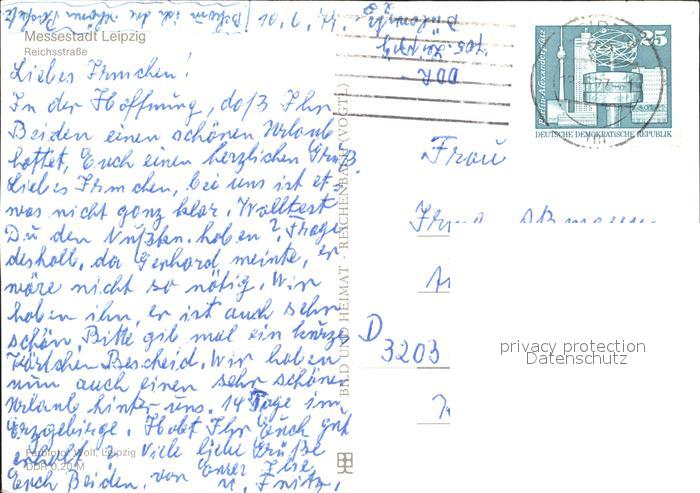 Messestadt Leipzig
Reichsstraße
Liebes Irmchen!
In der Hoffnung, daß Ihr
Beiden einen schönen Urlaub
hattet, Euch einen herzlichen Gruß.
Liebes Irmchen, bei uns ist et-
was nicht ganz klar. Wolltest
Du den Nußkn. haben? Frage
deshalb, da Gerhard meinte, er
wäre nicht so nötig. Wir
haben ihn, er ist auch sehr
schön. Bitte gib mal ein kurzes
Wörtchen Bescheid. Wir haben
nun auch einen sehr schönen
Urlaub hinter uns. 14 Tage im
Erzgebirge. Habt Ihr Euch gut
erholt? Viele liebe Grüße
Euch Beiden, von Eurer Ilse
u. Fritz.
Farbfoto: Wolf, Leipzig
DDR 0,20 M
BILD UND HEIMAT · REICHENBACH (VOGTL)
10.6.77.
705 Leipzig
DDR -
25
Berlin-Alexanderplatz
DEUTSCHE DEMOKRATISCHE REPUBLIK
Frau
D
3203
privacy protection
Datenschutz